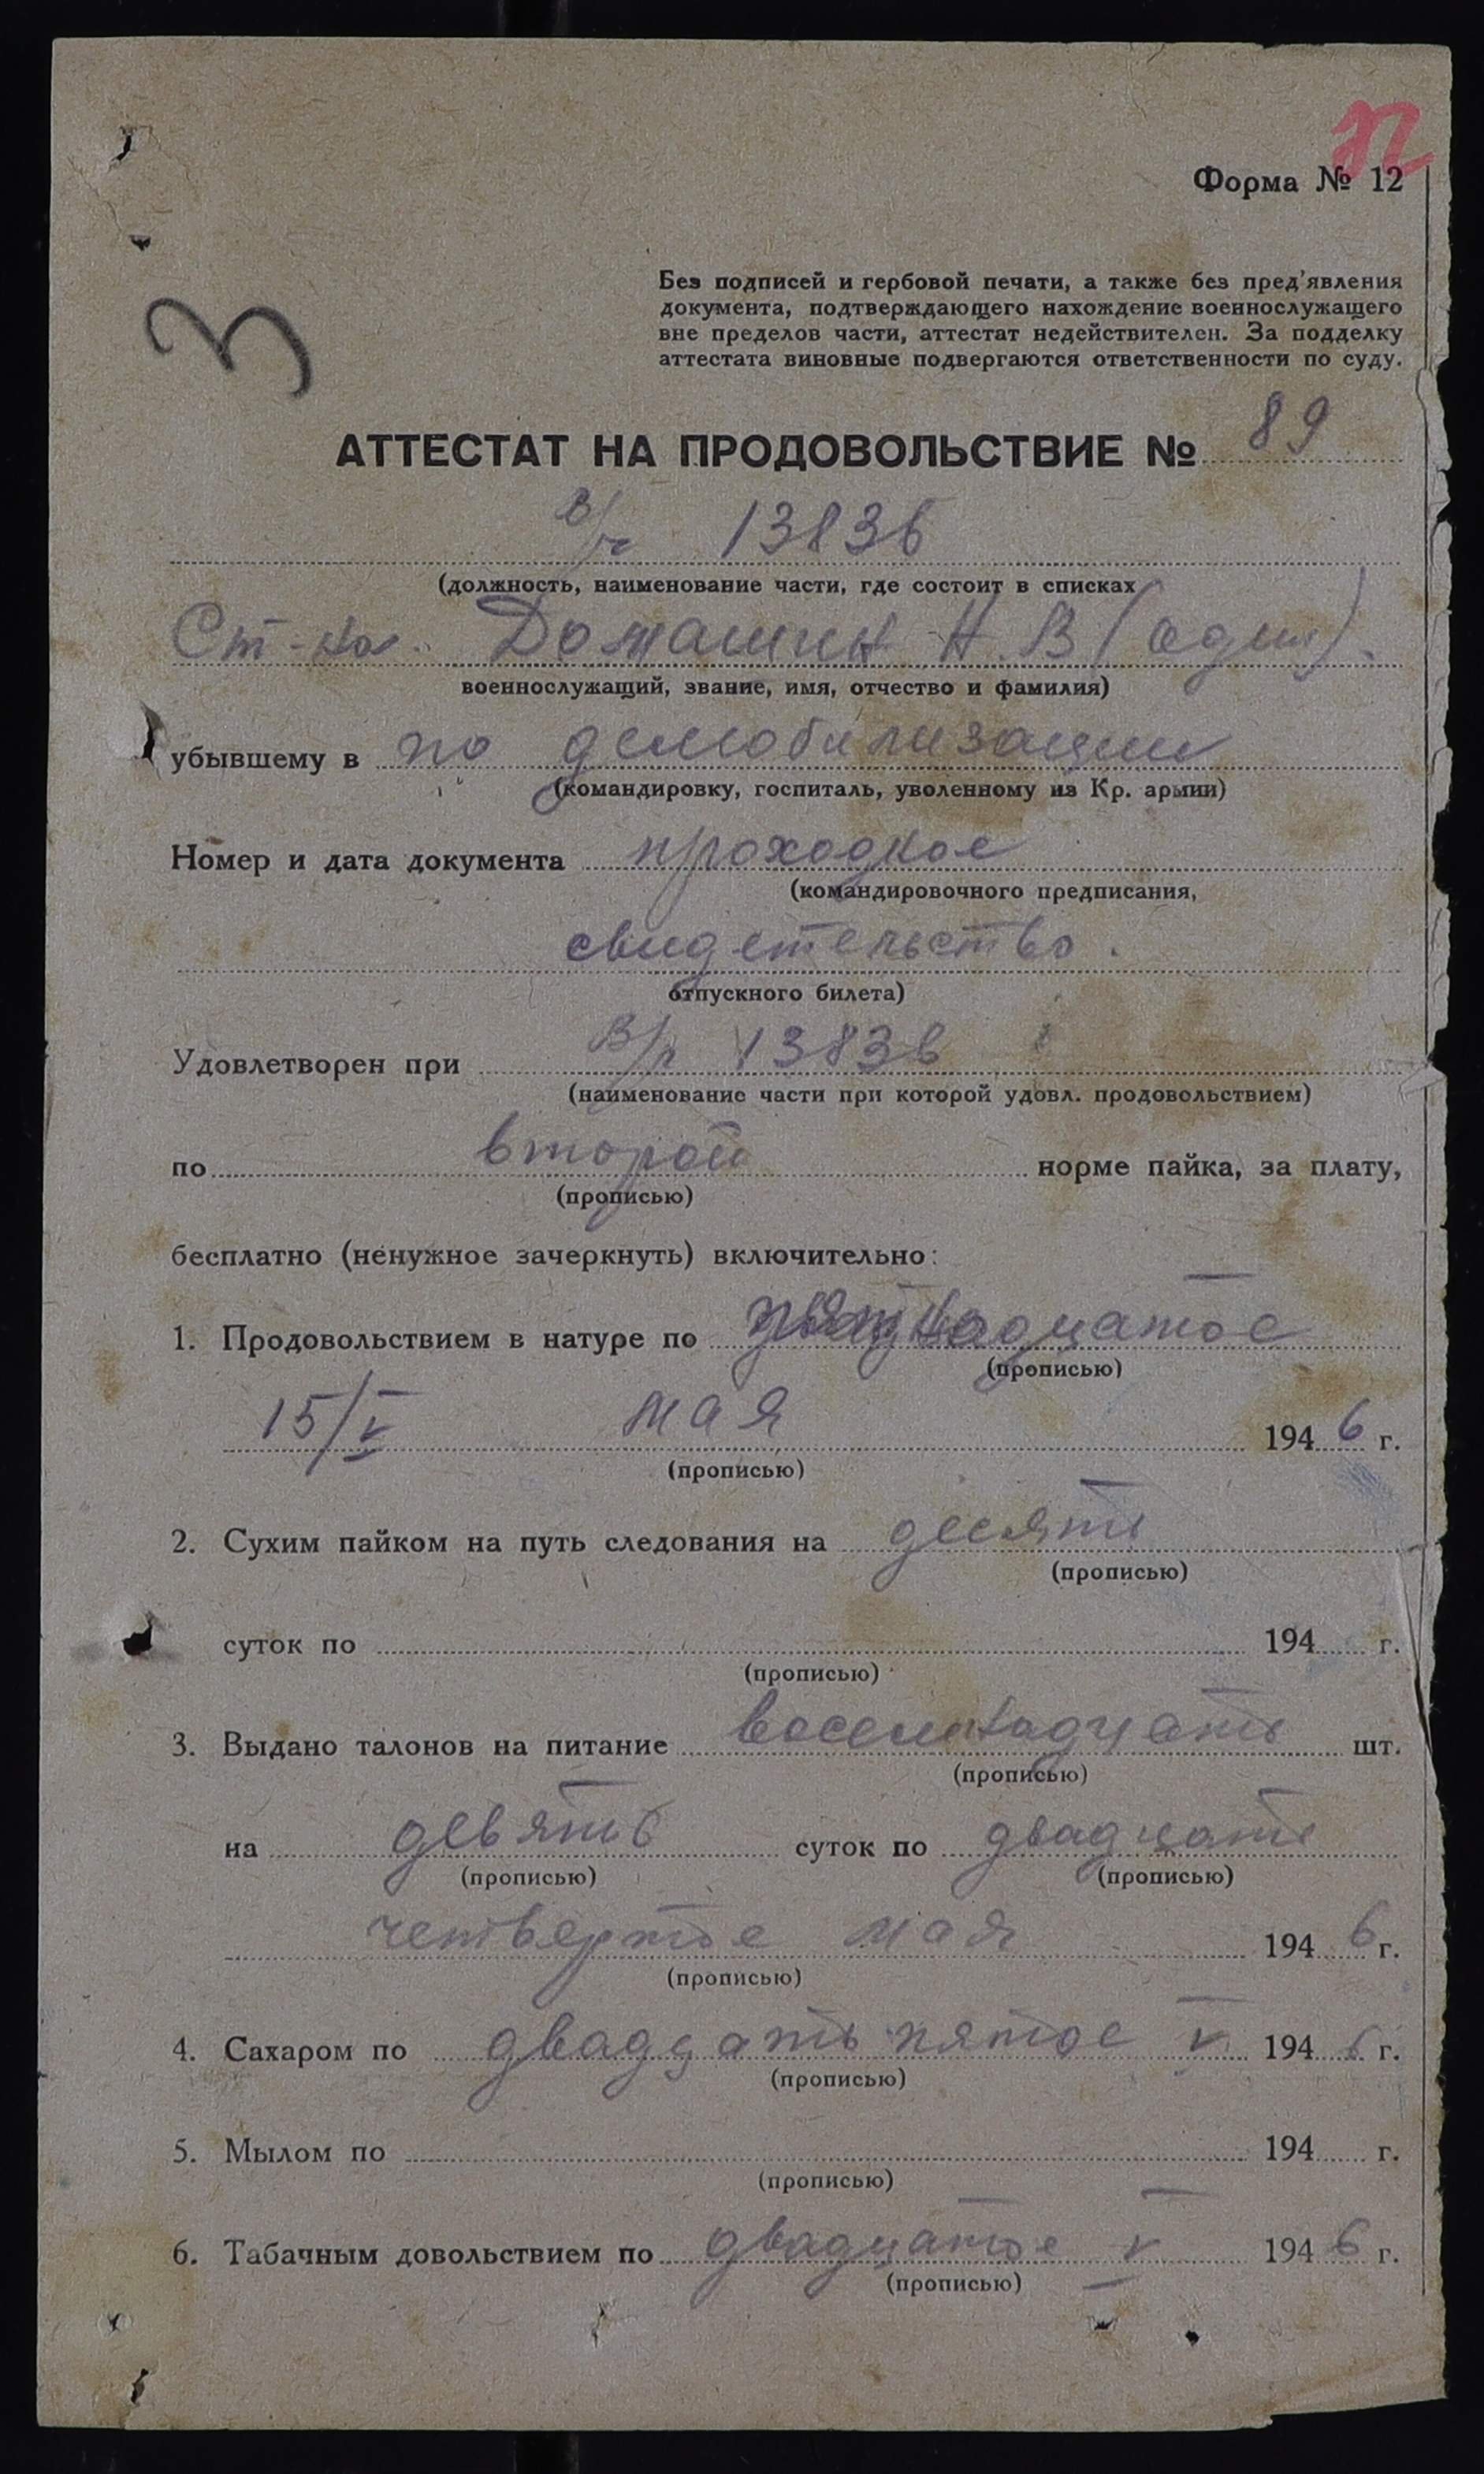 Форма № 12
Без подписей и гербовой печати, а также без пред'явления
документа, подтверждающего нахождение военнослужащего
вне пределов части, аттестат недействителен. За подделку
аттестата виновные подвергаются ответственности по суду.
3
АТТЕСТАТ НА ПРОДОВОЛЬСТВИЕ № 89
в/ч 13836
(должность, наименование части, где состоит в списках
Ст- Домашин Н.В (один).
военнослужащий, звание, имя, отчество и фамилия)
убывшему в по демобилизации
(командировку, госпиталь, уволенному из Кр. армии)
Номер и дата документа проходное
(командировочного предписания,
свидетельство.
отпускного билета)
Удовлетворен при в/ч 13836
(наименование части при которой удовл. продовольствием)
по второй норме пайка, за плату,
(прописью)
бесплатно (ненужное зачеркнуть) включительно:
1. Продовольствием в натуре по
(прописью)
15/V мая 1946 г.
(прописью)
2. Сухим пайком на путь следования на десять
(прописью)
суток по 194 г.
(прописью)
3. Выдано талонов на питание восемнадцать шт.
(прописью)
на девять суток по двадцать
(прописью) (прописью)
четвертое мая 1946 г.
(прописью)
4. Сахаром по двадцать пятое V 1946 г.
(прописью)
5. Мылом по 194 г.
(прописью)
6. Табачным довольствием по двадцатое V 1946 г.
(прописью)